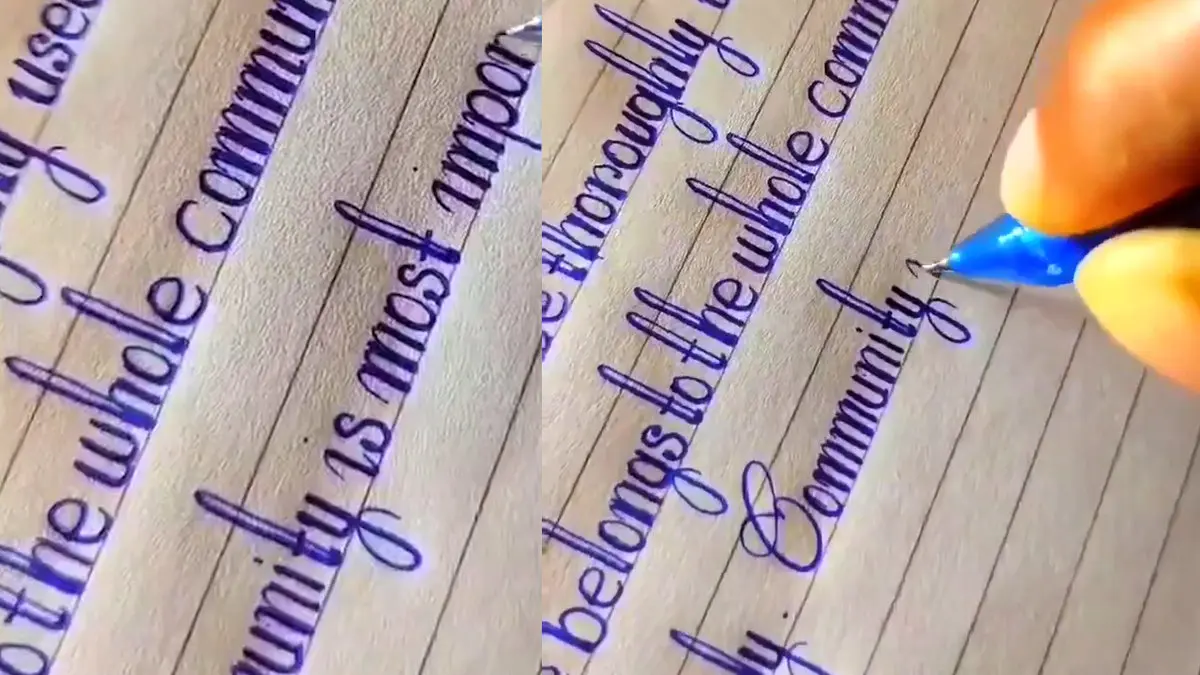 used
the whole commun
unity is most impor
thoroughly
belongs to the whole comm
Community